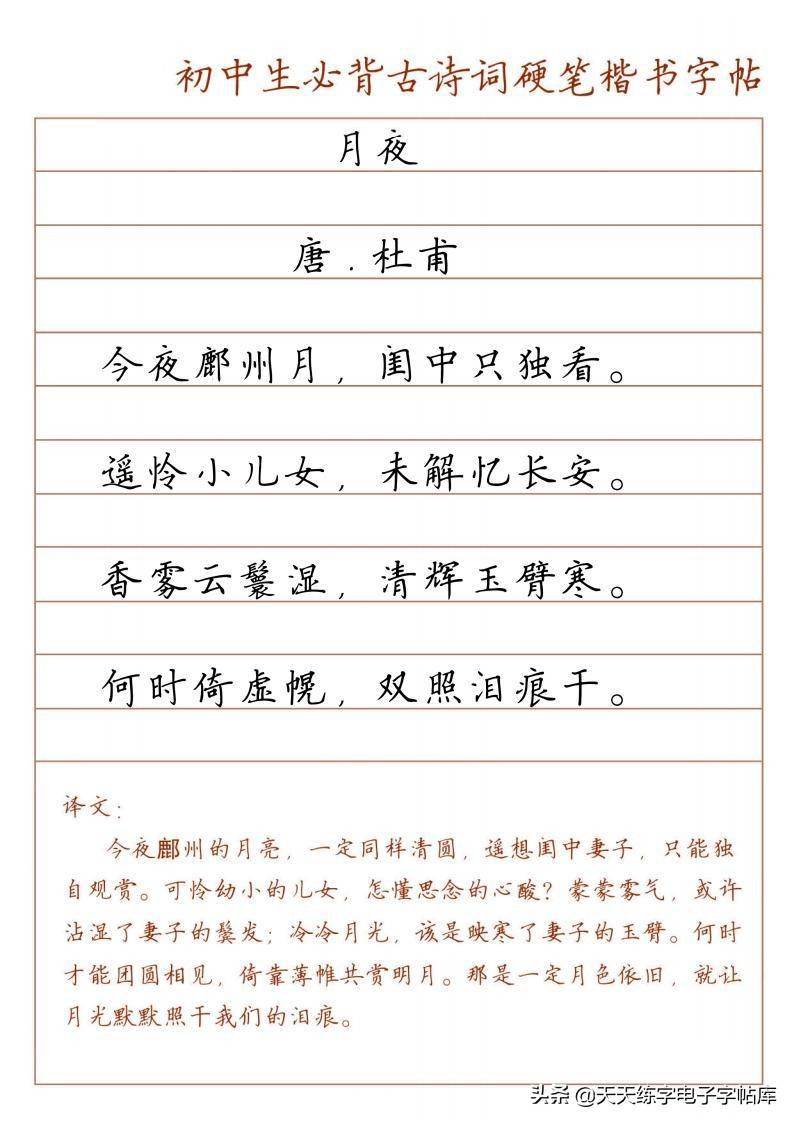 初中生必背古诗词硬笔楷书字帖
月夜
唐.杜甫
今夜鄜州月，闺中只独看。
遥怜小儿女，未解忆长安。
香雾云鬟湿，清辉玉臂寒。
何时倚虚幌，双照泪痕干。
译文：
今夜鄜州的月亮，一定同样清圆，遥想闺中妻子，只能独
自观赏。可怜幼小的儿女，怎懂思念的心酸？蒙蒙雾气，或许
沾湿了妻子的鬓发；冷冷月光，该是映寒了妻子的玉臂。何时
才能团圆相见，倚靠薄帷共赏明月。那是一定月色依旧，就让
月光默默照干我们的泪痕。
头条 @天天练字电子字帖库